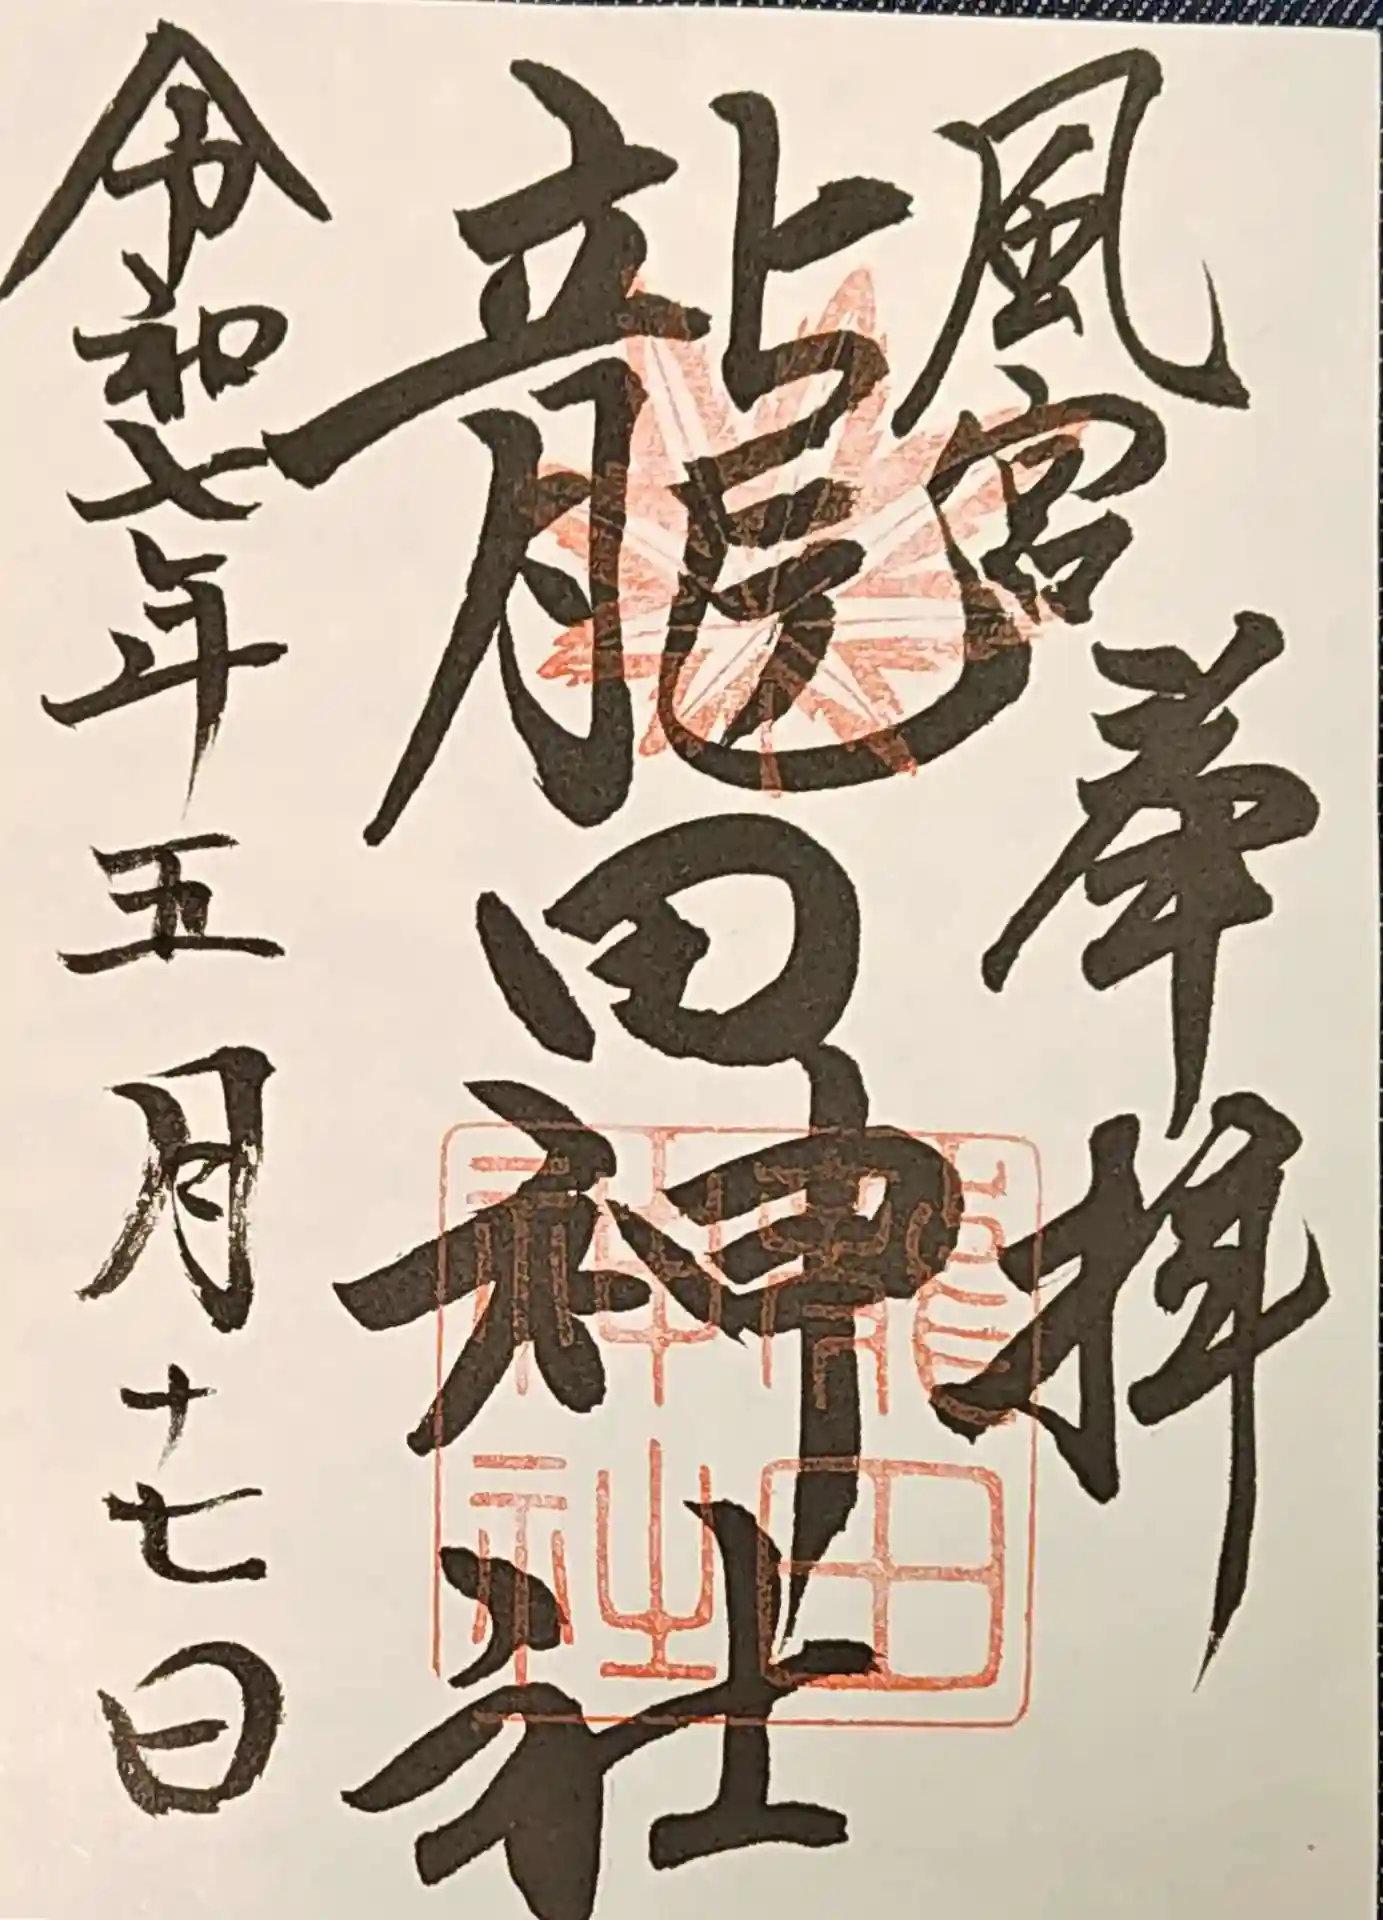 奉拝
風宮
龍田神社
龍田神社
令和七年五月十七日